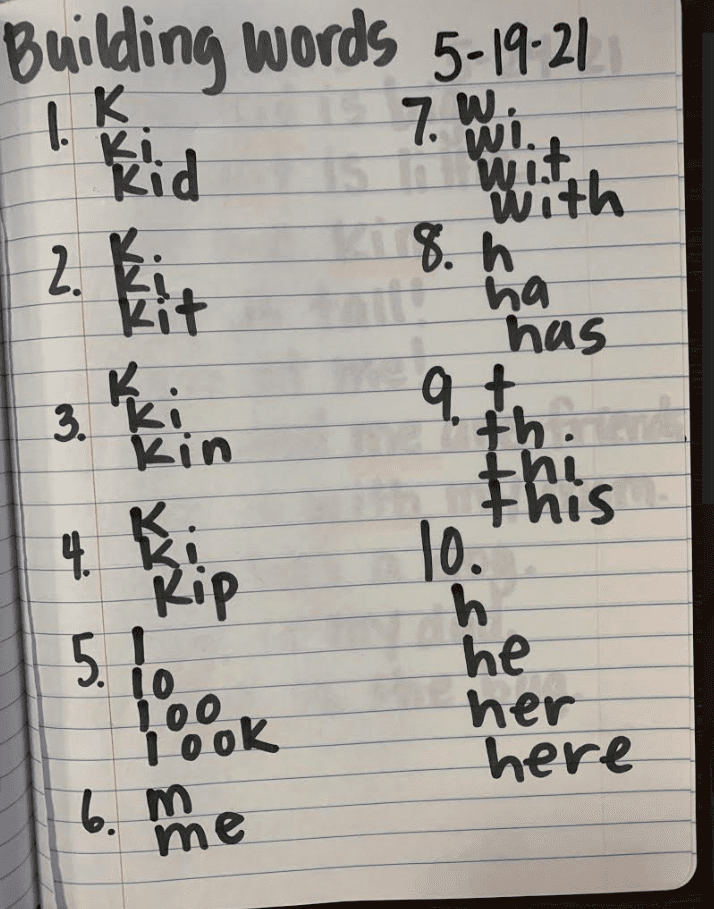 Building words 5-19-21
1. K
Ki
Kid
2. K
Ki
Kit
3. K
Ki
Kin
4. K
Ki
Kip
5. l
lo
loo
look
6. m
me
7. w
wi
wit
with
8. h
ha
has
9. t
th
thi
this
10.
h
he
her
here